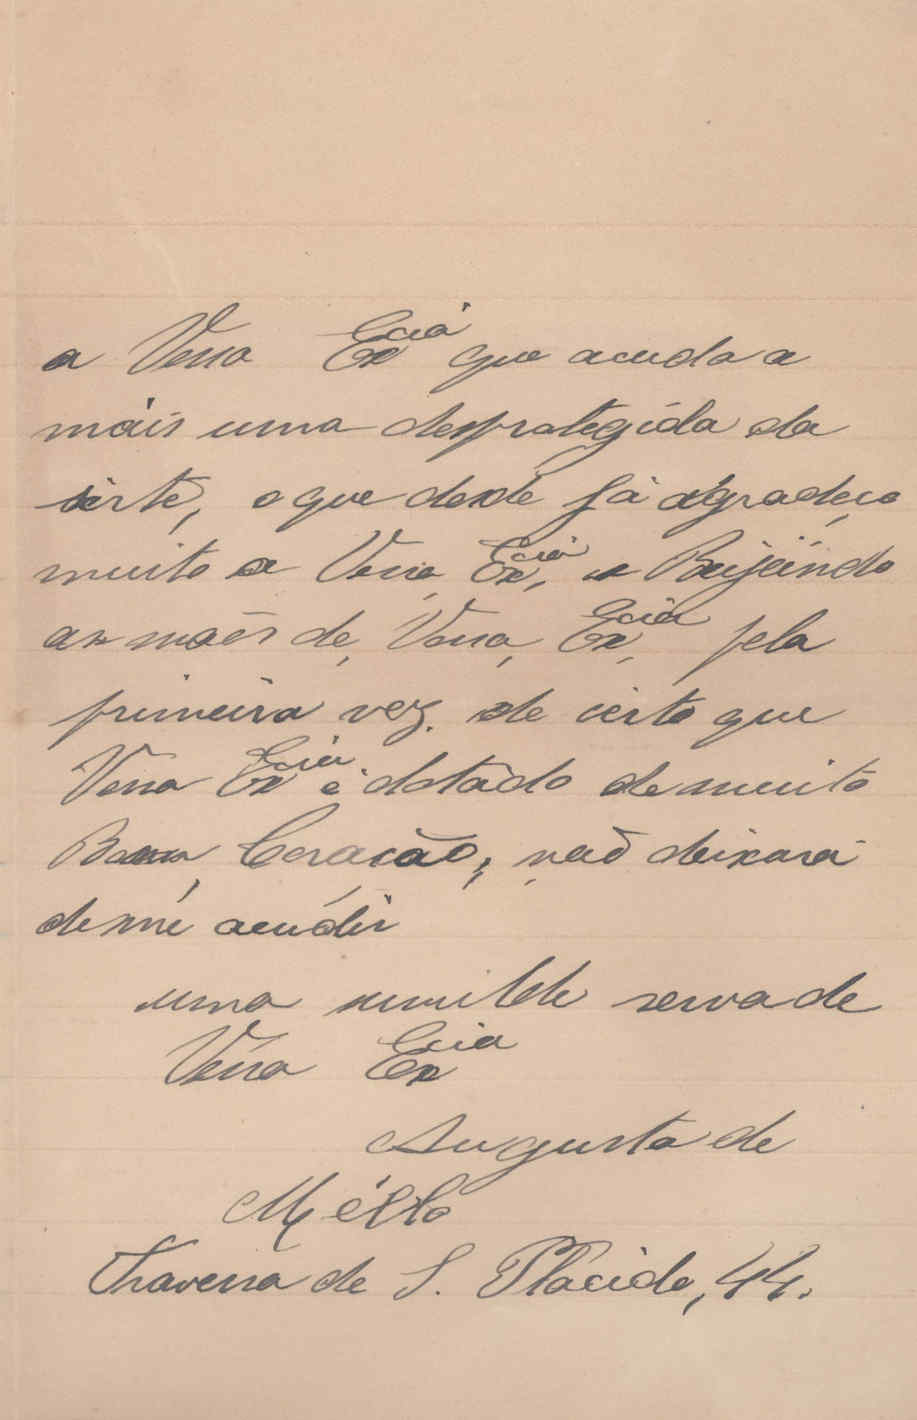 a Vossa Ex.cia que acuda a
máis uma desprotegida da
sorte, o que desde já agradeço
muito a Vossa Ex.cia, e Beijando
as mãos de, Vossa, Ex.cia, pela
primeira vez. de certo que
Vossa Ex.cia é dotádo de muito
Bom, Coração, não deixará
de me acudir
uma umilde serva de
Vossa Ex.cia
Augusta de
Méllo
Travessa de S. Plácido, 44.